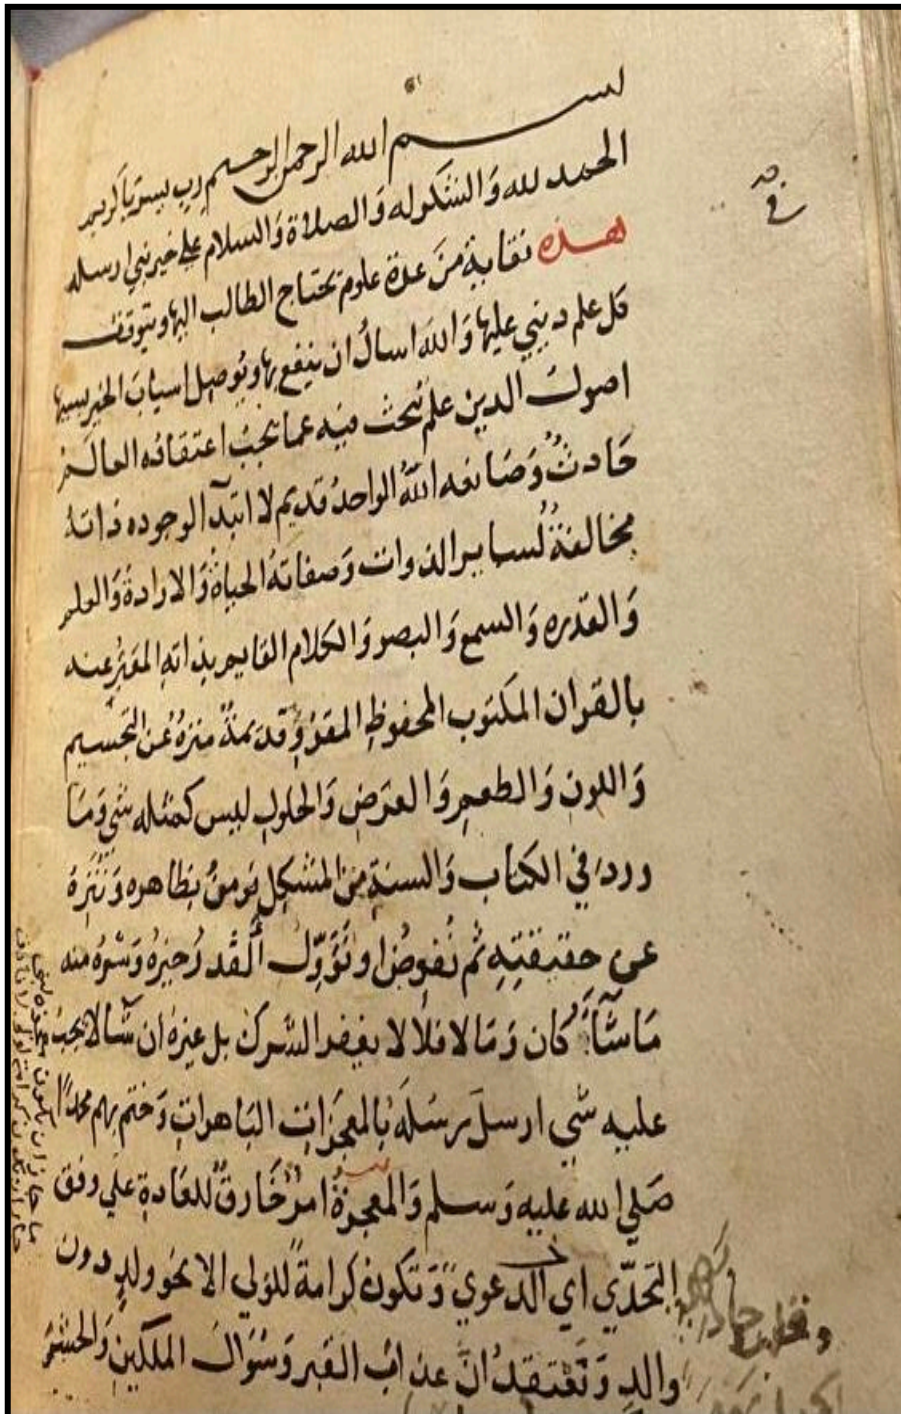 بسم الله الرحمن الرحيم رب يسر يا كريم
الحمد لله والشكر له والصلاة والسلام على خير نبي ارسله
هذه نقاية من عدة علوم يحتاج الطالب اليها ويتوقف
كل علم ديني عليها والله اسال ان ينفع بها ويوصل اسباب الخير بسببها
اصول الدين علم نبحث فيه عما يجب اعتقاده العالم
حادث وصانعه الله الواحد قديم لا ابتدآ لوجوده ذاته
مخالفة لساير الذوات وصفاته الحياة والارادة والعلم
والقدره والسمع والبصر والكلام القايم بذاته المعبر عنه
بالقران المكتوب المحفوظ المقرؤ قديمة منزه عن التجسيم
واللون والطعم والعرض والحلول ليس كمثله شي وما
ورد في الكتاب والسنة من المشكل نومن بظاهره وننزه
عن حقيقته ثم نفوض او نؤول القدر خيره وشره منه
ما شآء كان وما لا فلا لا يغفر الشرك بل غيره ان شآ لا يجب
عليه شي ارسل رسله بالمعجزات الباهرات وختم بهم محمدا
صلي الله عليه وسلم والمعجزة امر خارق للعادة علي وفق
التحدي اي الدعوي وتكون كرامة للولي الا نحو ولد دون
والد ونعتقد ان عذاب القبر وسؤال الملكين والحشر